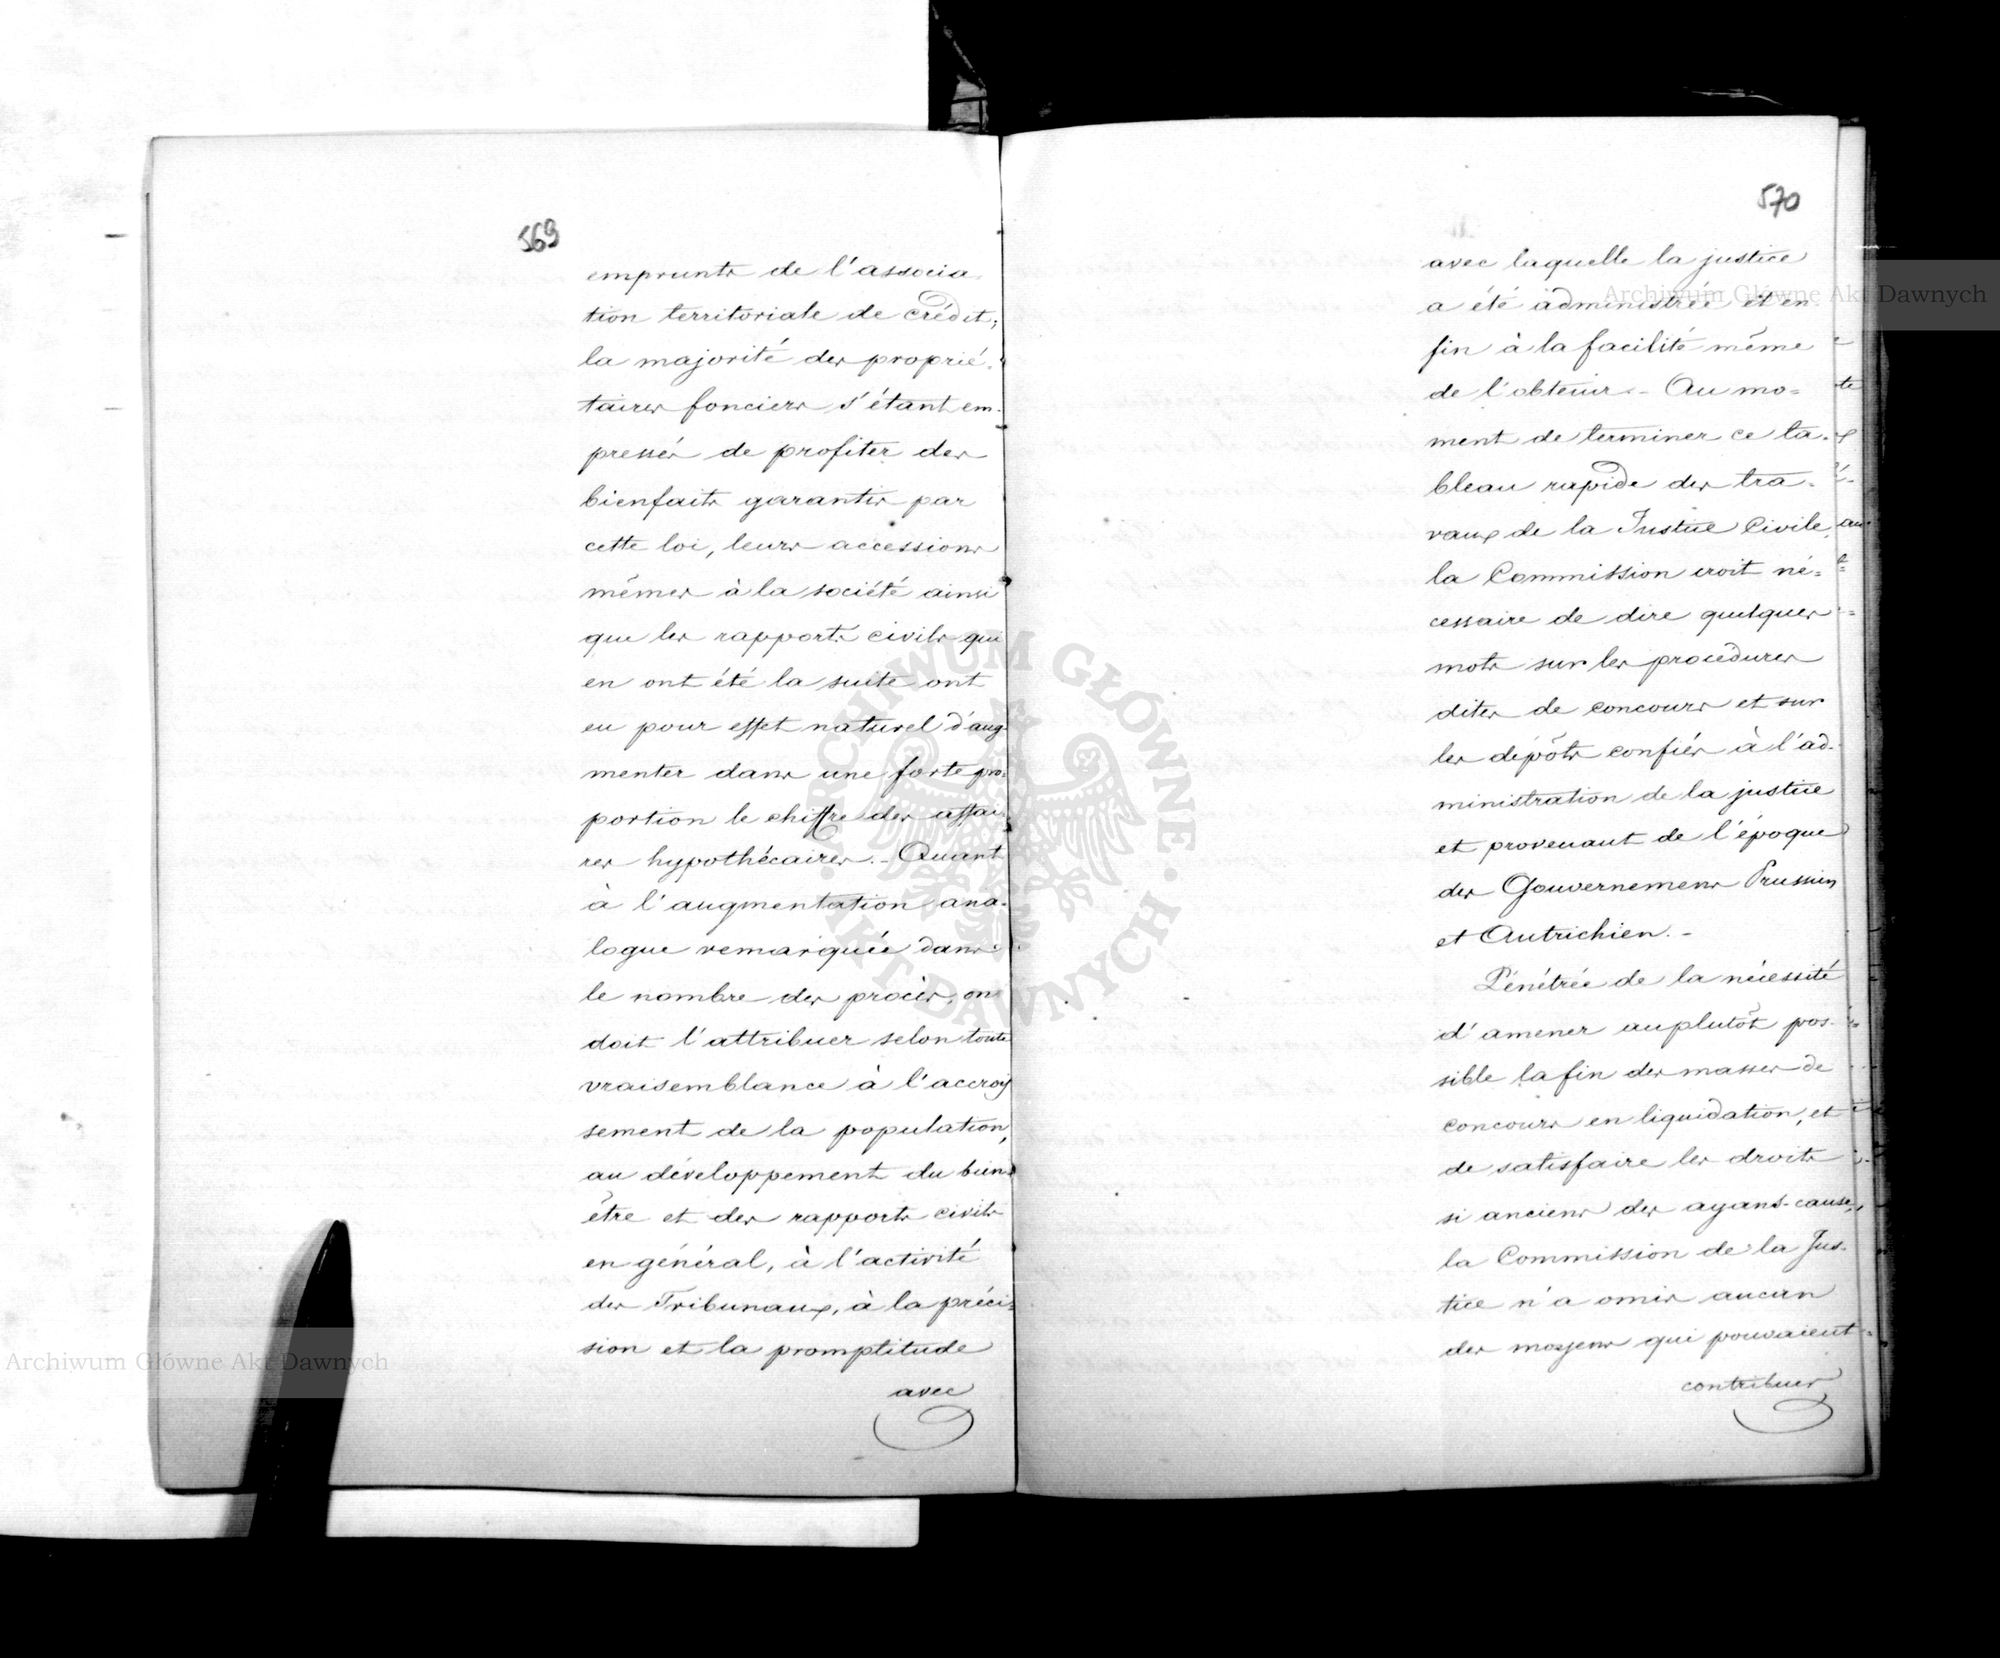 569
emprunts de l'associa
tion territoriale de crédit;
la majorité des proprié-
taires fonciers s'étant em-
pressés de profiter des
bienfaits garantis par
cette loi, leurs accessions
mêmes à la société ainsi
que les rapports civils qui
en ont été la suite ont
eu pour effet naturel d'aug
menter dans une forte pro-
portion le chiffre des affai-
res hypothécaires. - Quant
à l'augmentation ana-
logue remarquée dans
le nombre des procès, on
doit l'attribuer selon toute
vraisemblance à l'accrois
sement de la population,
au développement du bien
être et des rapports civils
en général, à l'activité
des Tribunaux, à la préci-
sion et la promptitude
avec
570
avec laquelle la justice
a été administrée et en
fin à la facilité même
de l'obtenir. - Au mo=
ment de terminer ce ta-
bleau rapide des tra-
vaux de la Justice Civile,
la Commission croit né=
cessaire de dire quelques
mots sur les procédures
dites de concours et sur
les dépôts confiés à l'ad-
ministration de la justice
et provenant de l'époque
des Gouvernemens Prussien
et Autrichien. -
Pénétrée de la nécessité
d'amener auplutôt pos-
sible la fin des masses de
concours en liquidation, et
de satisfaire les droits
si anciens des ayans-cause,
la Commission de la Jus-
tice n'a omis aucun
des moyens qui pouvaient
contribuer
Archiwum Główne Akt Dawnych
Archiwum Główne Akt Dawnych
ARCHIWUM GŁÓWNE · AKT DAWNYCH ·